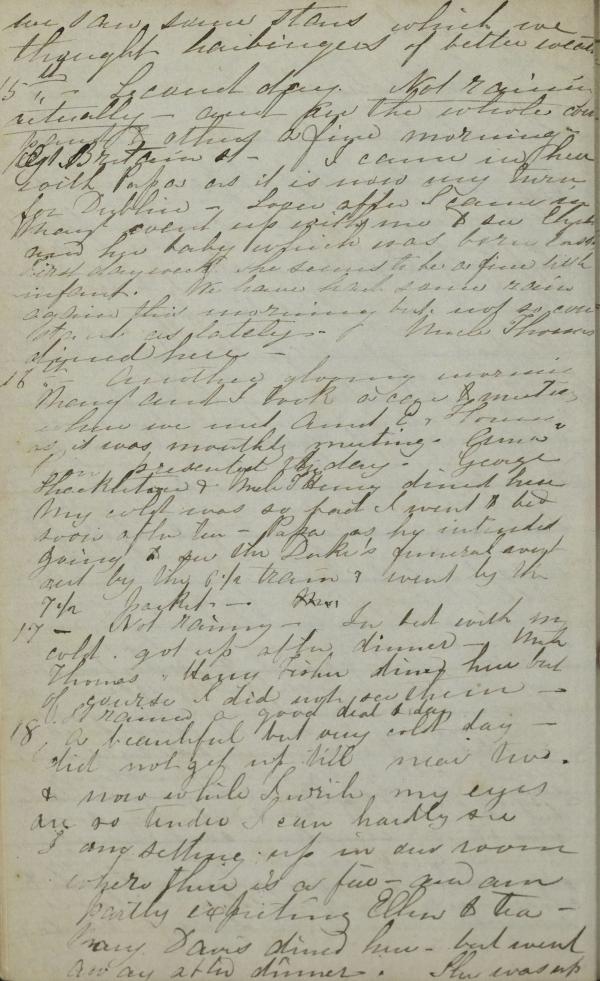 we saw some stars which we
thought harbingers of better weath
15th - Second day. Not rainin
actually - and on the whole com
pared to others a fine morning -
I came in here
with Papa as it is now my turn
for Dublin - Soon after I came in
Mary went up with me to see
and her baby which was born
First day week. She seems to be a fine little
infant. We have had some rain
again this morning but not so con
stant as lately. - Uncle Thomas
dined here -
16th - Another gloomy mornin
Mary and I took a car to meetin
where we met Aunt E.
as it was monthly meeting. Anna
presented to day. George
Shackleton & dined here
My cold was so bad I went to bed
soon after tea - Papa as he intended
going to see the Duke's funeral went
out by the 6 1/2 train & went by the
7 1/2 packet. -
17 - Not rainy - In bed with my
cold. got up after dinner -
Thomas & Henry Fisher dined here but
of course I did not see them -
It rained a good deal to day
18, a beautiful but very cold day -
did not get up till near two.
& now while I write my eyes
are so tender I can hardly see
I am setting up in our room
where there is a fire - and am
partly expecting Ellen to tea -
Mary Davis dined here - but went
away after dinner. She was up